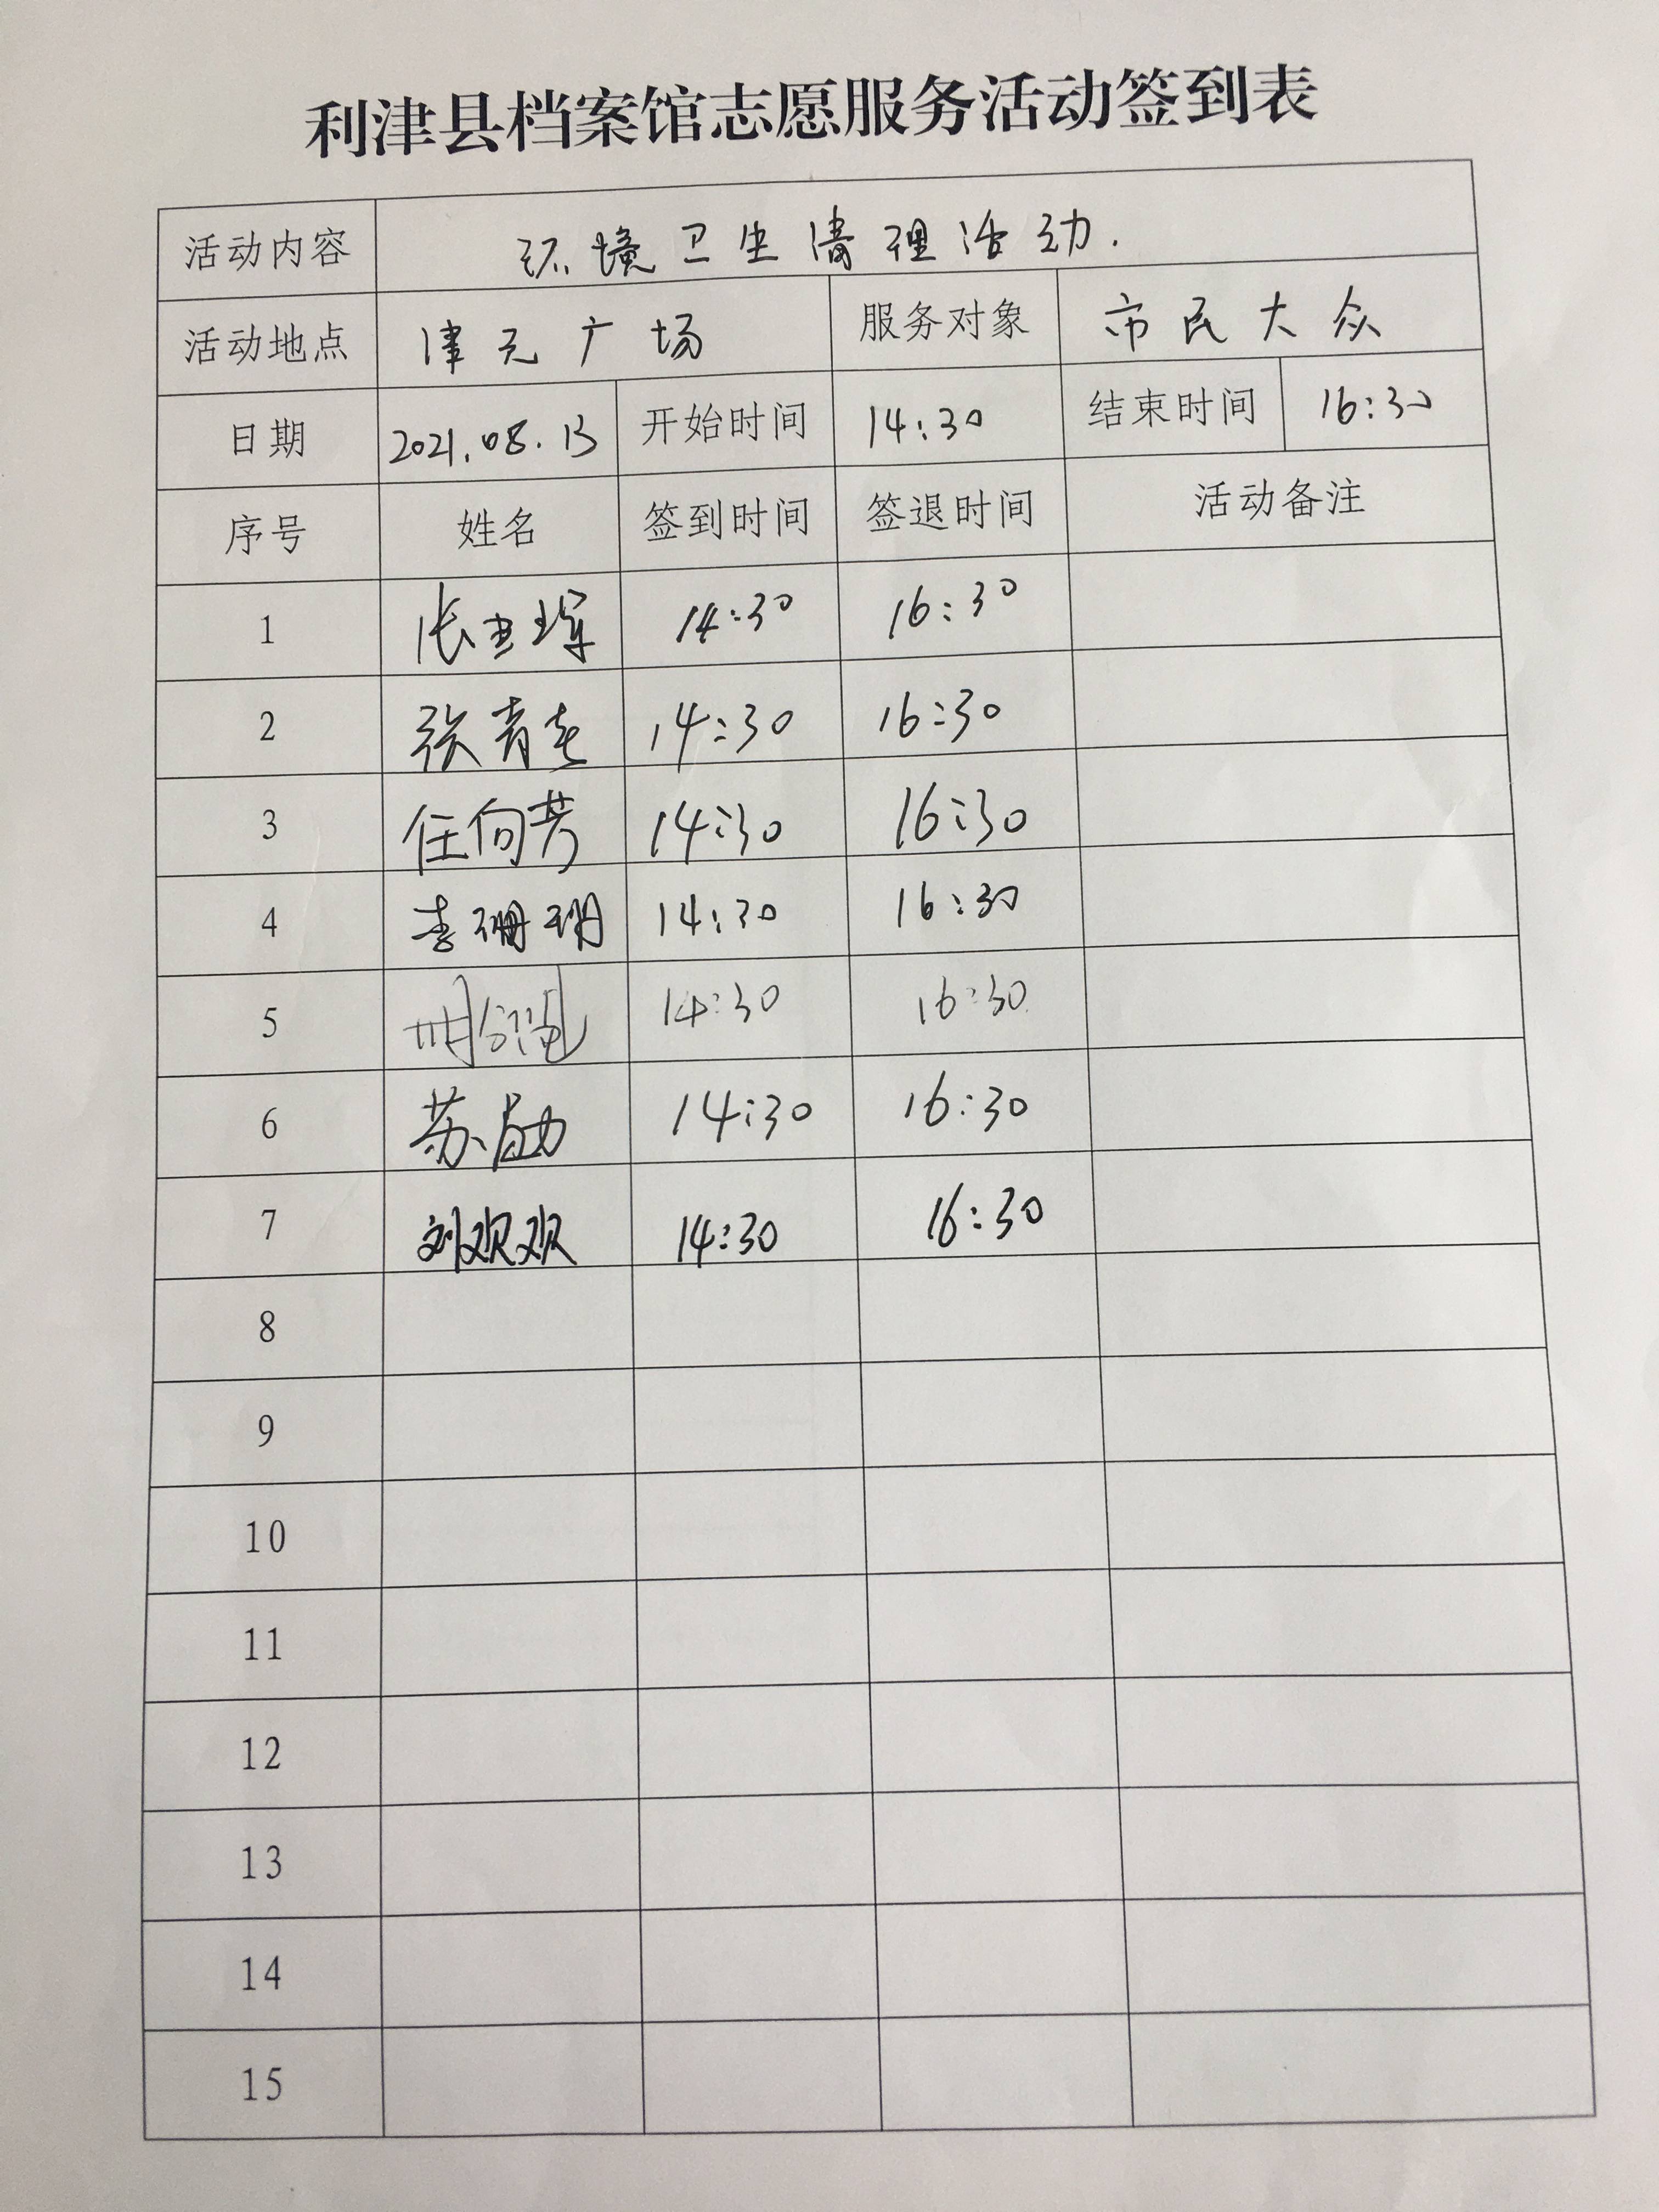 利津县档案馆志愿服务活动签到表
活动内容 环境卫生清理活动.
活动地点 津元广场 服务对象 市民大众
日期 2021.08.13 开始时间 14:30 结束时间 16:30
序号 姓名 签到时间 签退时间 活动备注
1 张 14:30 16:30
2 张青 14:30 16:30
3 任向芳 14:30 16:30
4 李珊珊 14:30 16:30
5 14:30 16:30
6 苏勋 14:30 16:30
7 刘观观 14:30 16:30
8
9
10
11
12
13
14
15